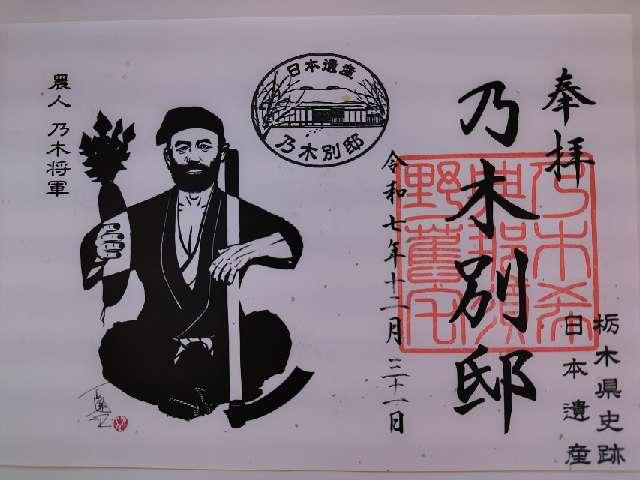 奉拝
乃木別邸
乃木希
典那須
野舊宅
栃木県史跡
日本遺産
令和七年十二月三十一日
日本遺産
乃木別邸
農人 乃木将軍